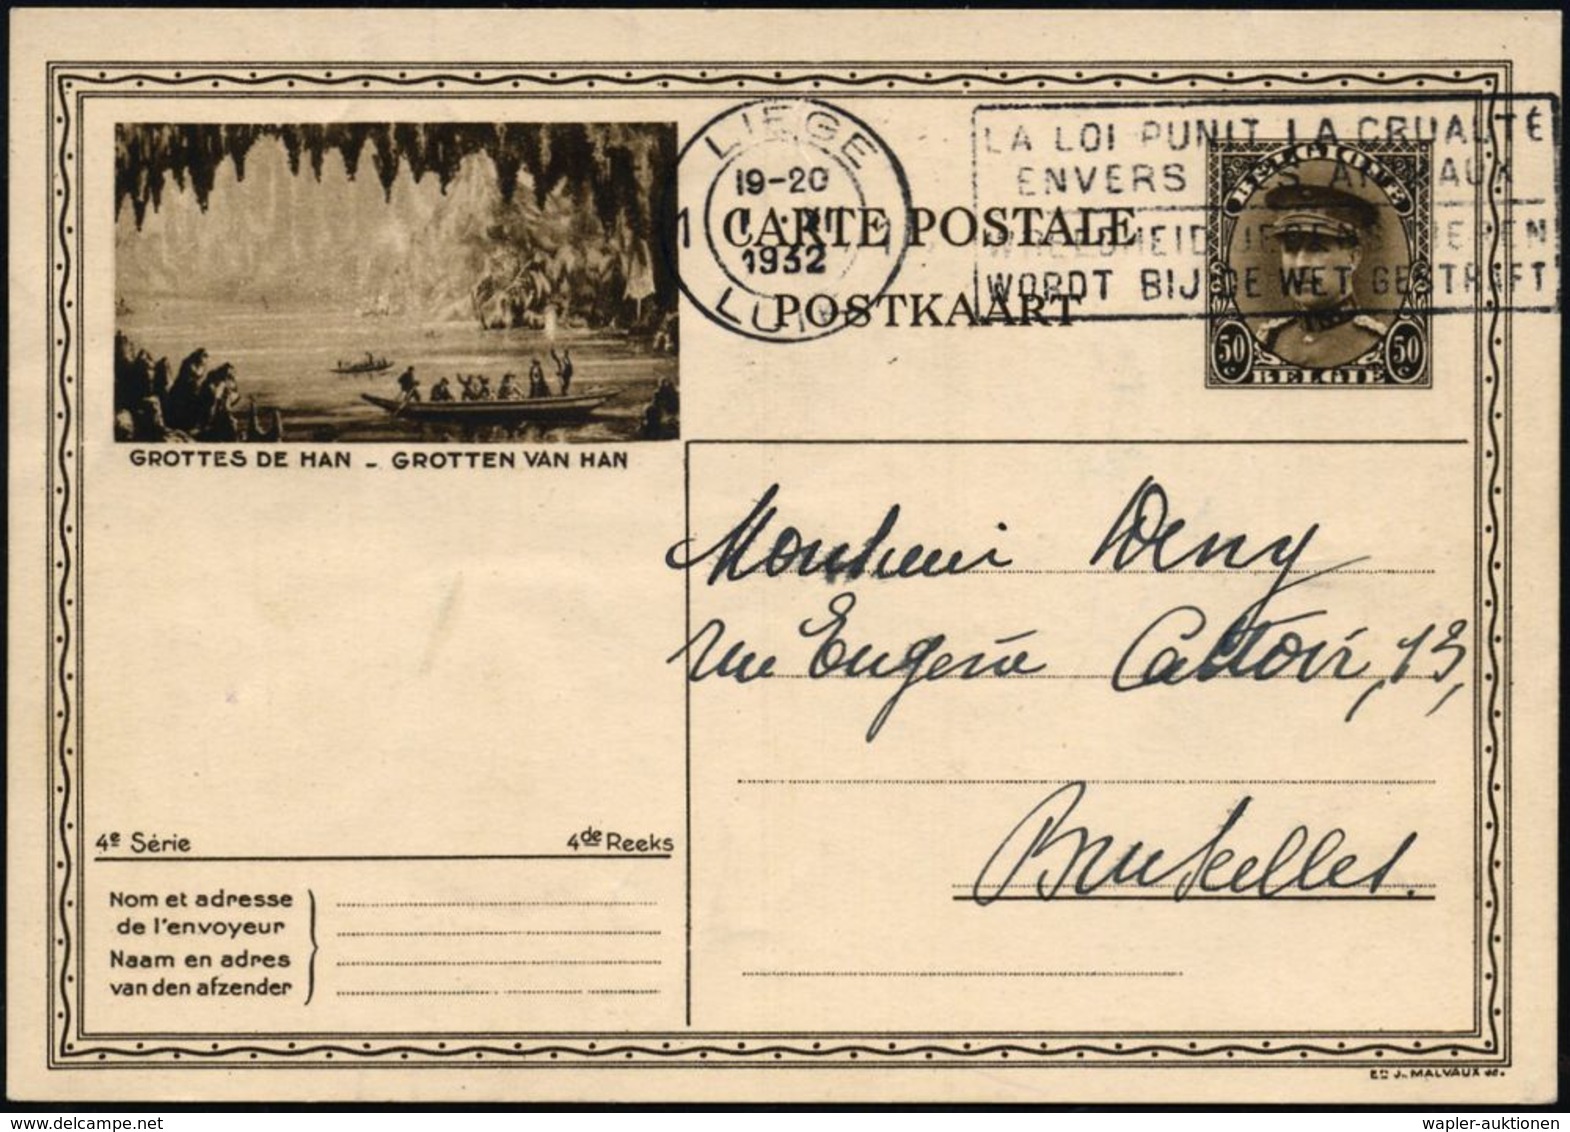 LIEGE
19-20
1932
LUIK
1
LA LOI PUNIT LA CRUAUTÉ
ENVERS LES ANIMAUX
WREEDHEID JEGENS DIEREN
WORDT BIJ DE WET GESTRAFT
CARTE POSTALE
POSTKAART
BELGIQUE
50 c 50 c
BELGIE
GROTTES DE HAN - GROTTEN VAN HAN
Monsieur Deny
rue Eugène Cattoir, 13,
Bruxelles.
4e Série 4de Reeks
Nom et adresse
de l'envoyeur
Naam en adres
van den afzender
J. MALVAUX
wapler-auktionen